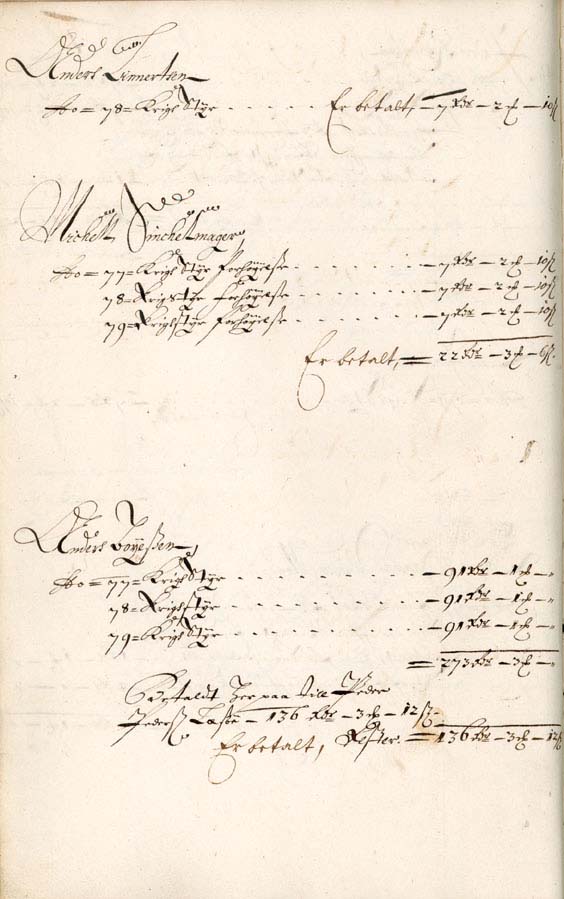 Anders Linnertsen
Ao = 78 = Krigs Styr . . . . . Er betalt, — 7 Rdr — 2 ₰ — 10 ß
Michell Sinckelmager
Ao = 77 = Krigs Styr Forhøyelse . . . . . . — 7 Rdr — 2 ₰ — 10 ß
78 = Krigstyr Forhøyelse . . . . . . — 7 Rdr — 2 ₰ — 10 ß
79 = Krigstyr Forhøyelse . . . . . . — 7 Rdr — 2 ₰ — 10 ß
Er betalt, = 22 Rdr — 3 ₰ — 6 ß.
Anders Boyessen
Ao = 77 = Krigs Styr . . . . . . . . . — 91 Rdr — 1 ₰ — "
78 = Krigstyr . . . . . . . . . — 91 Rdr — 1 ₰ — "
79 = Krigs Styr . . . . . . . . . — 91 Rdr — 1 ₰ — "
= 273 Rdr — 3 ₰ — "
Betaldt Her paa till Peder
Peders — 136 Rdr — 3 ₰ — 12 ß
Er betalt, Rester. = 136 Rdr — 3 ₰ — 12 ß